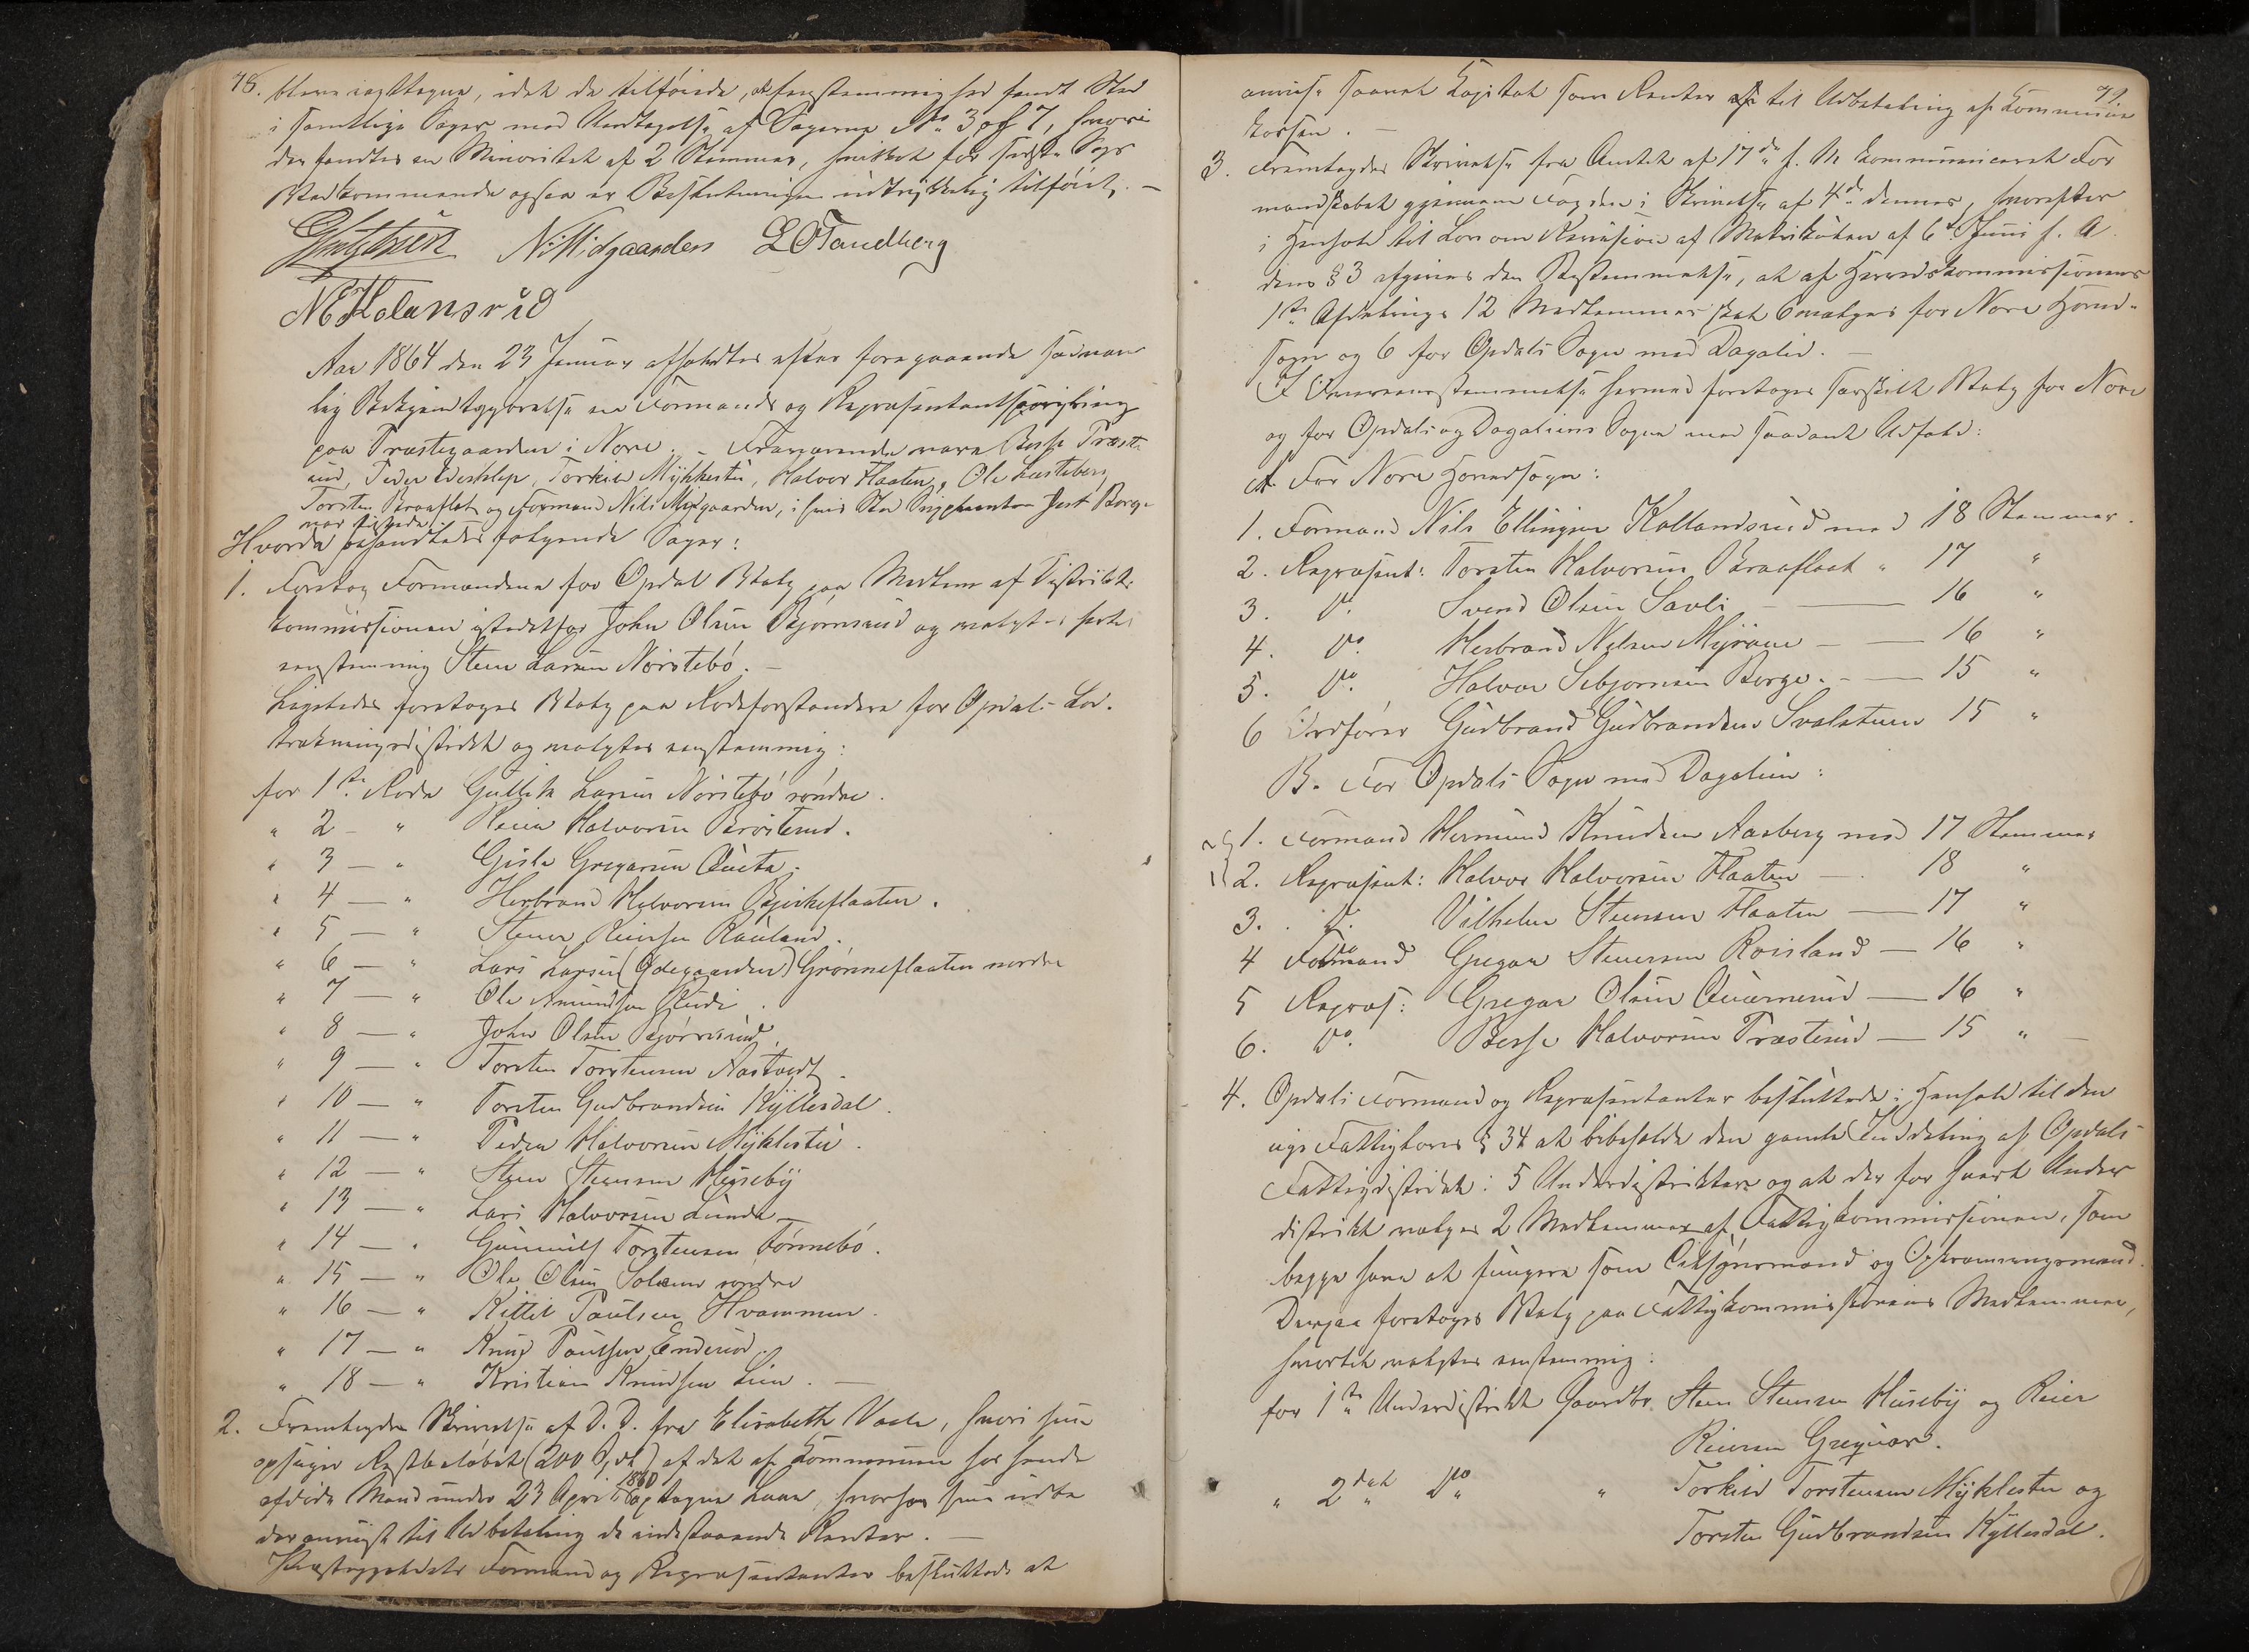 78.
bleve iagttagne, idet de tilføiede, at Eenstemmighed fandt Sted
i samtlige Sager med Undtagelse af Sagerne No 3 og 7, hvori
der fandtes en Minoritet af 2 Stemmer, hvilket for sidste Sags
Vedkommende ogsaa er Beslutningen udtrykkelig tilføiet. —
N. Midgaarden
NEKolansrud
Aar 1864 den 23 Januar afholdtes efter foregaaende sædvan-
lig Bekjendtgjørelse en Formands og Repræsentantsforsamling
paa Præstegaarden i Nore. – Fraværende vare Besse Præste-
rud, Peder, Torkild Myklestu, Halvor Flaaten, Ole
Torsten Braaflat og Formand Nils Midgaarden, i hvis Sted Suppleanten Borge
var tilstede
Hvorda behandledes følgende Sager:
1. Foretog Formændene for Opdal Valg paa Medlem af Distrikts-
kommissionen istedetfor John Olsen Bjørnsrud og valgtes
eenstemmig Steen Larsen Nørstebø. –
Ligeledes foretoges Valg paa Rodeforstandere for Opdal-
distrikt og valgtes eenstemmig:
for 1ste Rode Gullik Larsen Nørstebø søndre.
" 2 – " Reier Halvorsen Brøsterud.
" 3 – " Gisle Gregarsen
" 4 – " Herbrand Halvorsen Bjerkeflaaten.
" 5 – " Steener Reiersen Rauland.
" 6 – " Lars Larsen (Ødegaarden) Grønneflaaten nordre
" 7 – " Ole Amundsen Ruudi.
" 8 – " John Olsen Bjørnsrud.
" 9 – " Torsten Torstensen Aastvedt.
" 10 – " Torsten Gudbrandsen Kyllesdal.
" 11 – " Peder Halvorsen Myklestu.
" 12 – " Steen Steensen Huseby
" 13 – " Lars Halvorsen Lunde –
" 14 – " Gunnulf Torstensen Tønnebø.
" 15 – " Ole Olsen Solem søndre
" 16 – " Kittil Paulsen Hvammen.
" 17 – " Knud Paulsen Enderud.
" 18 – " Kristian Knudsen Lien. —
2. Fremlagdes Skrivelse af D. D. fra Elisabeth Vaale, hvori hun
opsiger Restbeløbet (200 Spd) af det af Kommunen hos hendes
afdøde Mand under 23 April 1860 optagne Laan, hvorhos hun udbe-
der anvist til Udbetaling de indestaaende Renter. —
Præstegjeldets Formænd og Repræsentanter besluttede at
79
anvise saavel Kapital som Renter til Udbetaling af Kommune-
kassen. –
3. Fremlagdes Skrivelse fra Amtet af 17de f. M. kommuniceret For-
mandskabet gjennem Fogden i Skrivelse af 4de dennes, hvorefter
i Henhold til Lov om Revision af Matrikulen af 6te Juni f. A.
dens § 3 afgives den Bestemmelse, at af Herredskommissionens
1ste Afdelings 12 Medlemmer skal 6 vælges for Nore Hoved-
sogn og 6 for Opdals Sogn med Dagalid. –
I Overeensstemmelse hermed foretoges særskilt Valg for Nore
og for Opdals og Dagaliens Sogne med saadant Udfald:
A For Nore Hovedsogn:
1. Formand Nils Ellingsen Kollandsrud med 18 Stemmer.
2. Repræsent: Torsten Halvorsen Braaflaat " 17 "
3. Do. Svend Olsen Savli — 16 "
4. Do. Herbrand Nilsen Myrane — 16 "
5. Do. Halvor Sebjørnsen Borge. — 15 "
6 Ordfører Gudbrand Gudbrandsen Svalatuen 15 "
B. For Opdals Sogn med Dagalien:
1. Formand Hermund Knudsen Aasberg med 17 Stemmer
2. Repræsent: Halvor Halvorsen Flaaten — 18 "
3. Do. Vilhelm Steensen Flaaten — 17 "
4 Formand Gregar Steensen Roisland — 16 "
5 Repræs: Gregar Olsen Qværnerud — 16 "
6. Do. Besse Halvorsen Præsterud — 15 "
4. Opdals Formænd og Repræsentanter besluttede i Henhold til den
nye Fattiglovs § 34 at bibeholde den gamle Inddeling af Opdals
Fattigdistrikt i 5 Underdistrikter og at der for hvert Under-
distrikt vælges 2 Medlemmer af Fattigkommissionen, som
begge have at fungere som Tilsynsmænd og Opkrævningsmænd.
Derpaa foretoges Valg paa Fattigkommissionens Medlemmer,
hvortil valgtes eenstemmig:
for 1ste Underdistrikt Gaardbr. Steen Steensen Huseby og Reier
Reiersen Greguar.
" 2det Do " Torkild Torstensen Myklestu og
Torsten Gudbrandsen Kyllesdal.